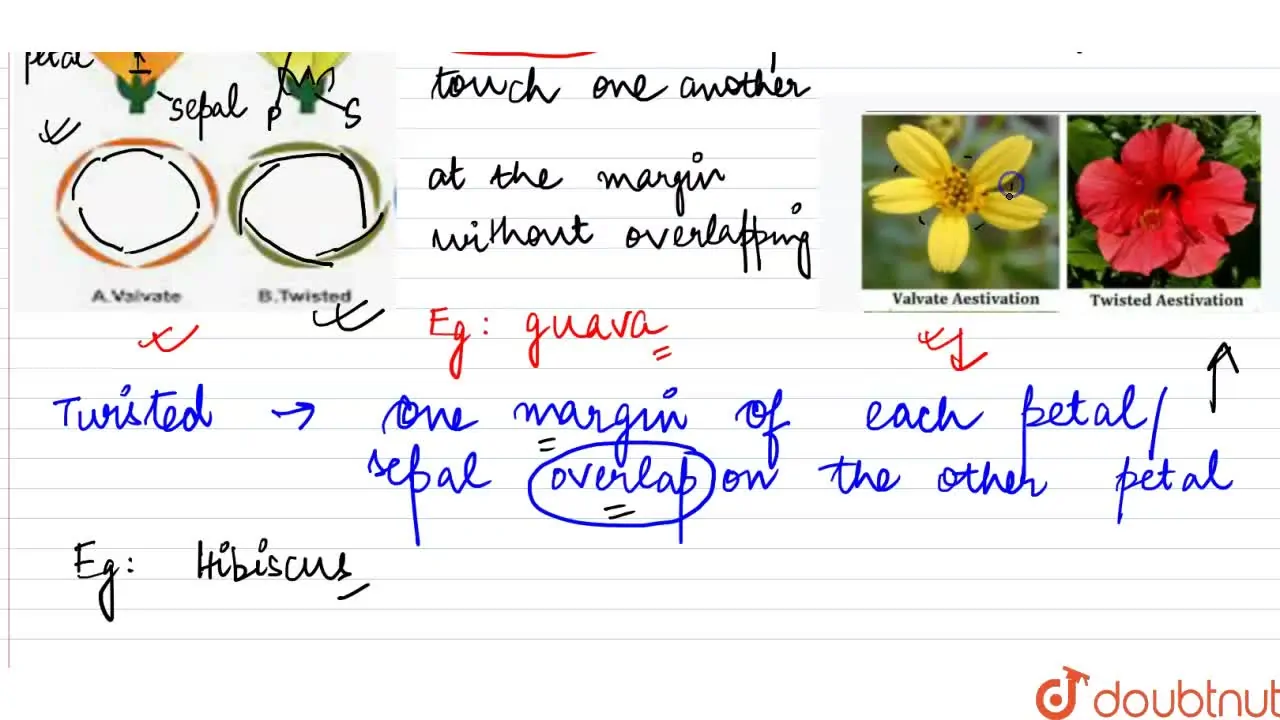 petal
sepal
P
S
touch one another
at the margin
without overlapping
A.Valvate
B.Twisted
Valvate Aestivation
Twisted Aestivation
Eg: guava
Twisted → one margin of each petal/
sepal overlap on the other petal
Eg: Hibiscus
doubtnut